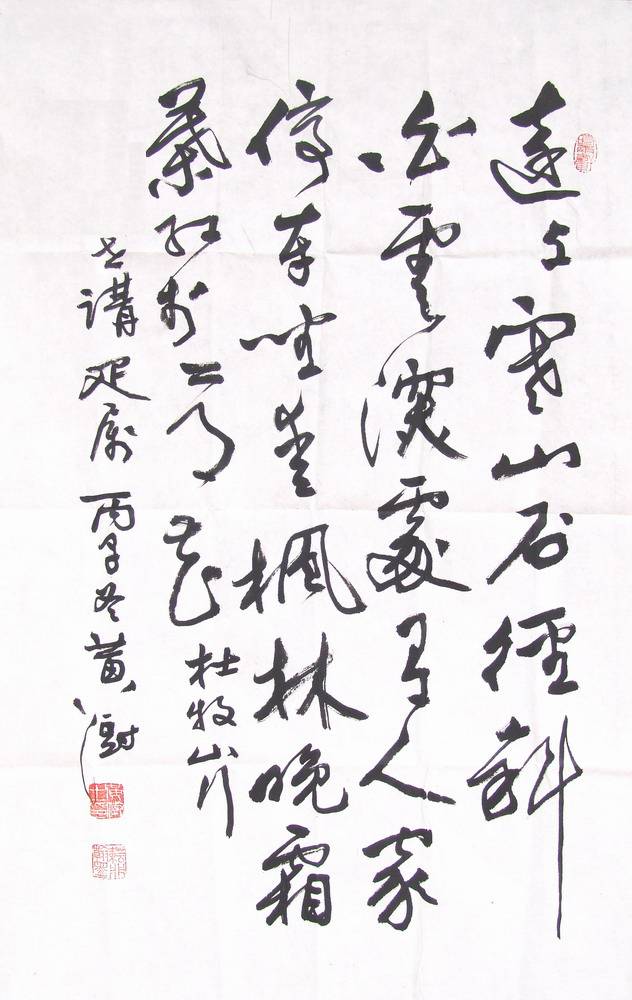 遠上寒山石徑斜
白雲深處有人家
停車坐愛楓林晚霜
葉紅於二月花 杜牧山行
世講疋屬 丙子冬黃澍